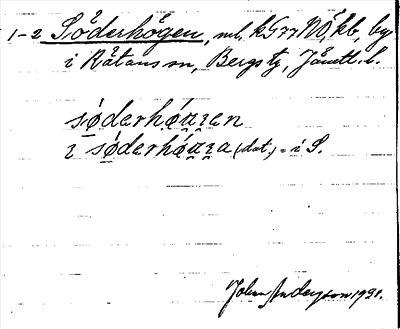 1-2 Söderhögen, ml. kS77NÖ, kb, by
i Rätans sn, Bergs tg, Jämtl. l.
söderhøgen
i söderhøga (dat.) = i S.
Johan Anderson 1930.